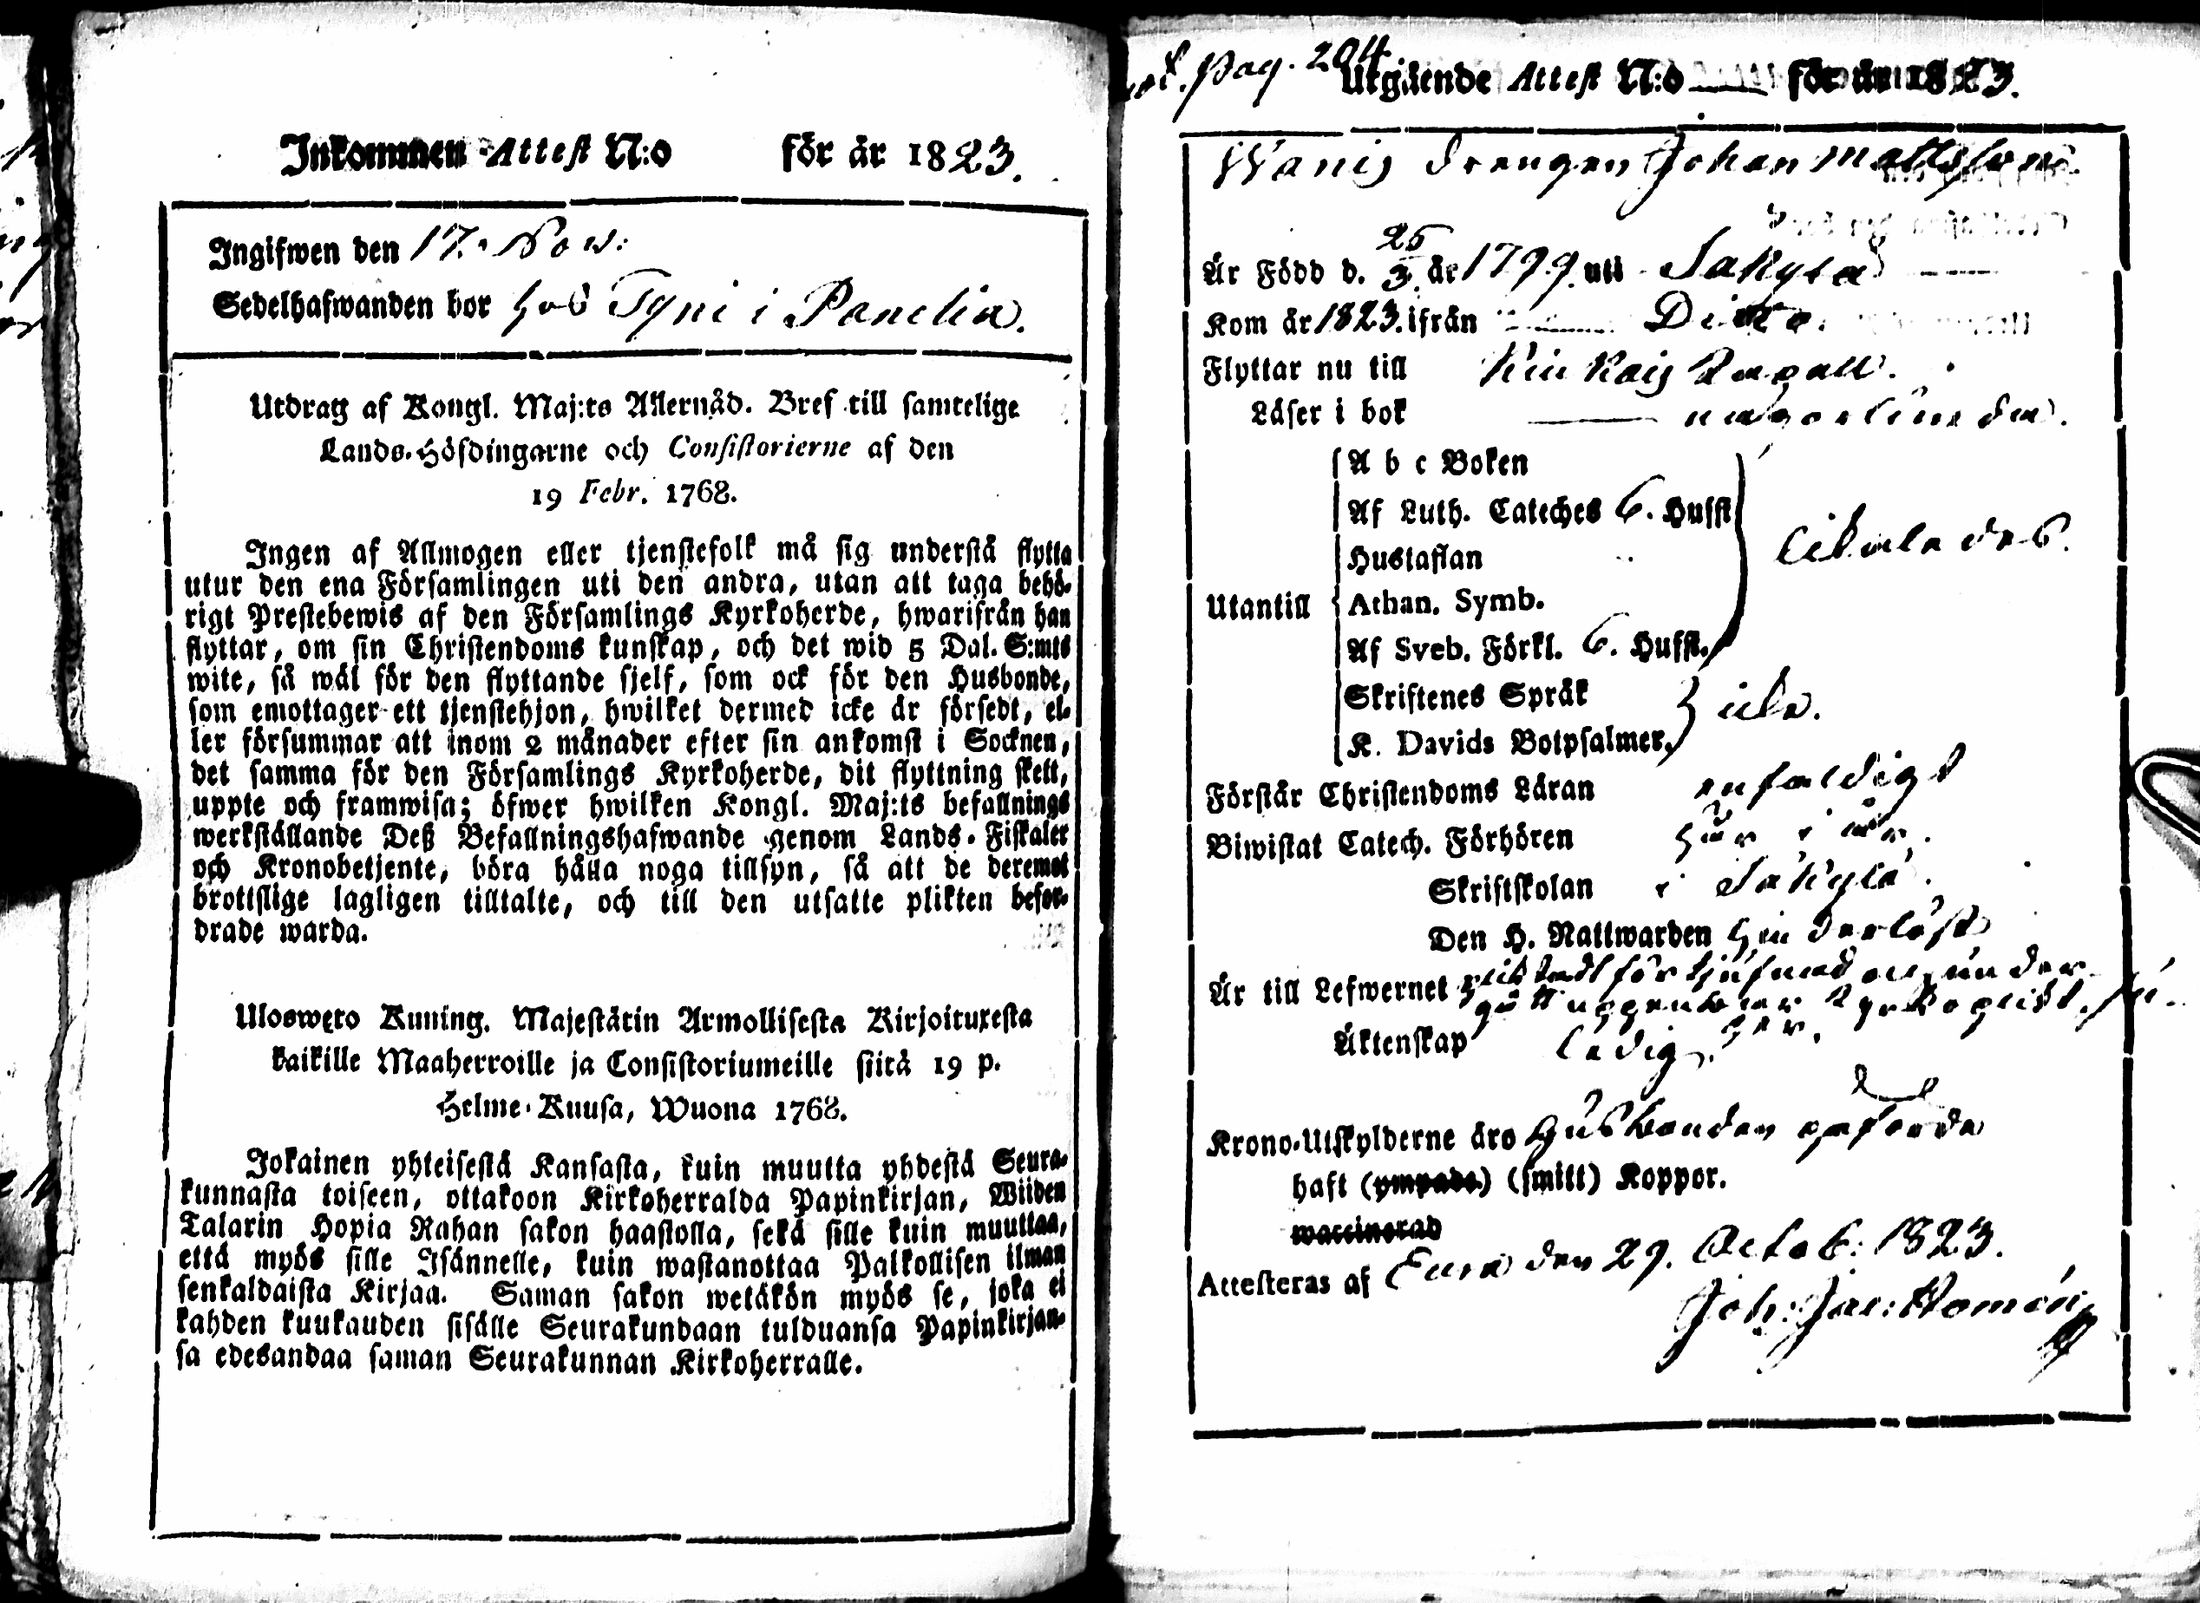 Inkommen Attest N:o för år 1823.
Ingifwen den 17. Nov:
Sedelhafwanden bor hos Tyni i Panelia.
Utdrag af Kongl. Maj:ts Allernåd. Bref till samtelige
Lands-Höfdingarne och Consistorierne af den
19 Febr. 1768.
Ingen af Allmogen eller tjenstefolk må sig understå flytta
utur den ena Församlingen uti den andra, utan att taga behö-
rigt Prestebewis af den Församlings Kyrkoherde, hwarifrån han
flyttar, om sin Christendoms kunskap, och det wid 5 Dal. S:mts
wite, så wäl för den flyttande sjelf, som ock för den Husbonde,
som emottager ett tjenstehjon, hwilket dermed icke är försedt, el-
ler försummar att inom 2 månader efter sin ankomst i Socknen,
det samma för den Församlings Kyrkoherde, dit flyttning skett,
uppte och framwisa; öfwer hwilken Kongl. Maj:ts befallnings
werkställande Deß Befallningshafwande genom Lands-Fiskaler
och Kronobetjente, böra hålla noga tillsyn, så att de deremot
brottslige lagligen tilltalte, och till den utsatte plikten befor-
drade warda.
Ulosweto Kuning. Majestätin Armollisesta Kirjoituxesta
kaikille Maaherroille ja Consistoriumeille siitä 19 p.
Helme-Kuusa, Wuona 1768.
Jokainen yhteisestä Kansasta, kuin muutta yhdestä Seura-
kunnasta toiseen, ottakoon Kirkoherralda Papinkirjan, Wiiden
Talarin Hopia Rahan sakon haastolla, sekä sille kuin muuttaa,
että myös sille Isännelle, kuin wastanottaa Palkollisen ilman
senkaldaista Kirjaa. Saman sakon wetäkön myös se, joka ei
kahden kuukauden sisälle Seurakundaan tulduansa Papinkirjan-
sa edesandaa saman Seurakunnan Kirkoherralle.
Pag. 204
Utgående Attest N:o för år 1823.
drengen Johan Mattsson
Är Född d. 26/3 år 1799 uti Säkylä
Kom år 1823. ifrån Ditto.
Flyttar nu till Kiukais Capell.
Läser i bok
A b c Boken
Af Luth. Cateches 6. Hufst
Hustaflan
Utantill Athan. Symb.
Af Sveb. Förkl. 6. Hufst.
Skriftenes Språk
K. Davids Botpsalmer, icke.
Förstår Christendoms Läran enfaldigt
Biwistat Catech. Förhören här i år.
Skriftskolan i Säkylä.
Den H. Nattwarden hinderlöst
Är till Lefwernet för tjufnad
Äktenskap ledig.
Krono-Utskylderne äro Husbonden
haft (ympade.) (smitt) Koppor.
waccinerad
Attesteras af Eura den 29. Octob: 1823.
Joh: Jac: Homén